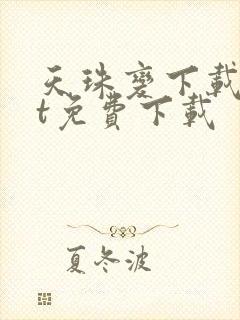 天珠變下載
t免費下載
夏冬波